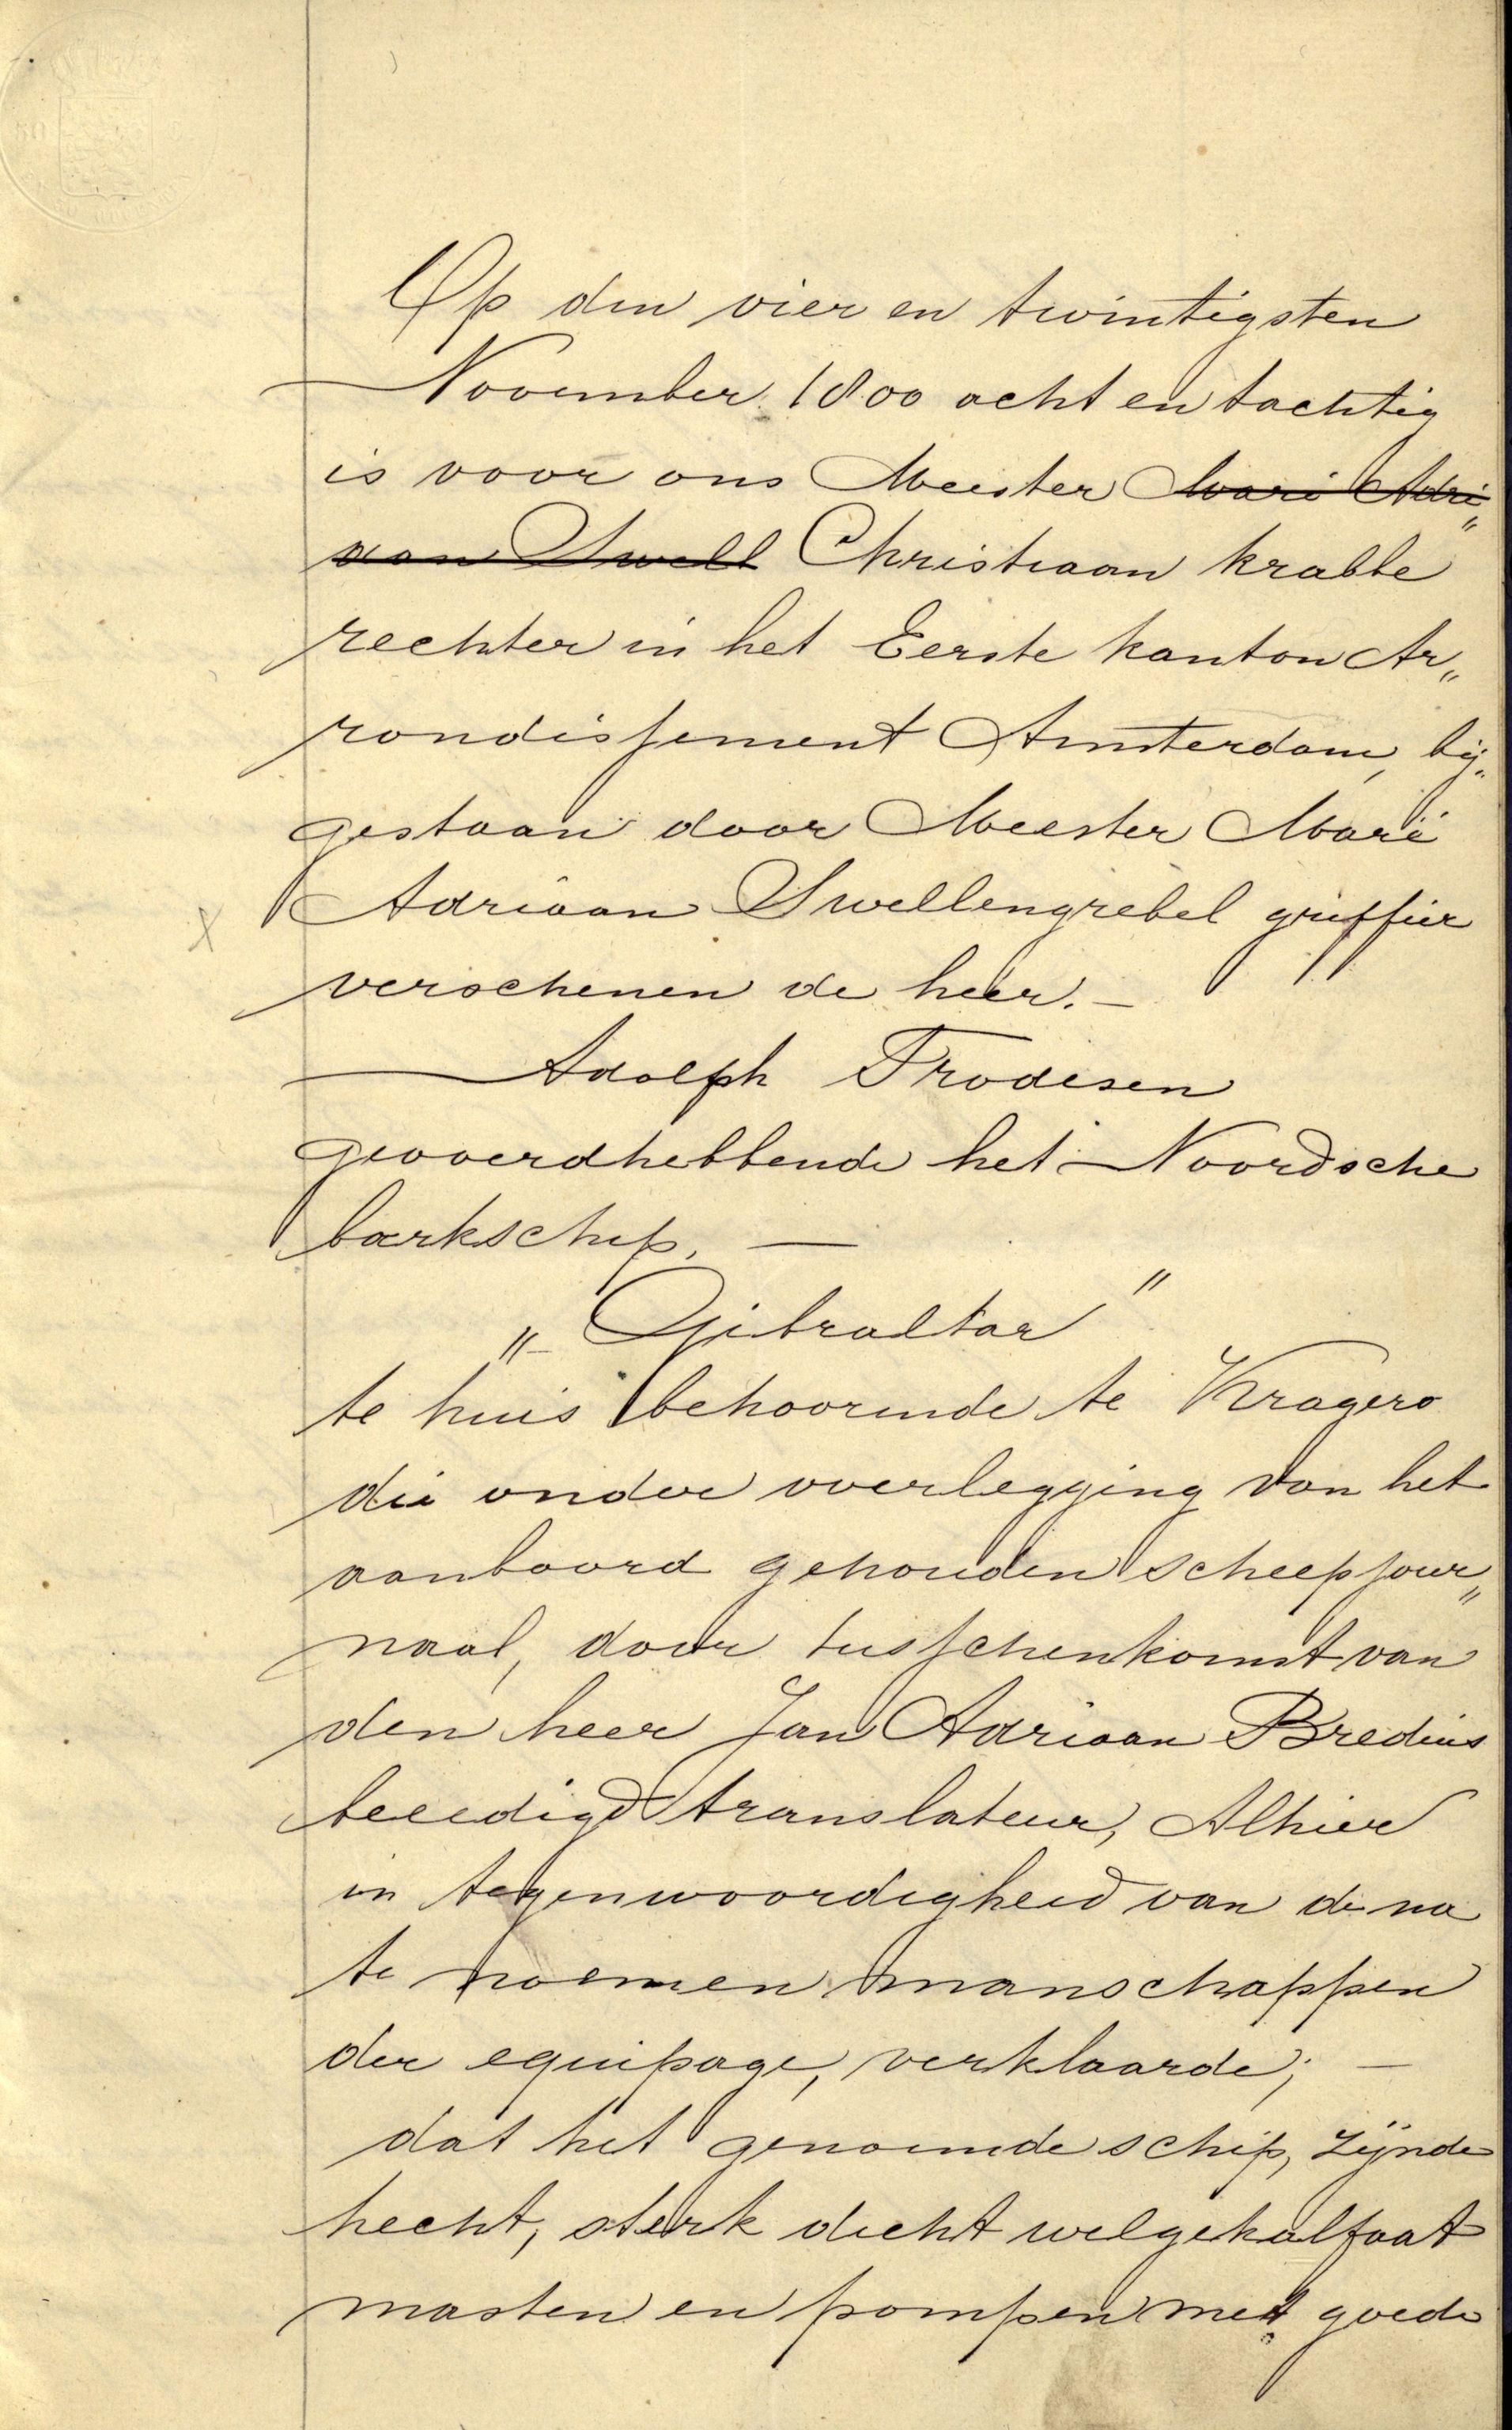 Op den vier en twintigsten
November 1800 acht en tachtig
is voor ons Meester Mari Adri„
aan Swell Christiaan Krabbe
rechter in het Eerste kanton Ar„
rondissement Amsterdam, bij„
gestaan door Meester Mari
Adriaan Swellengrebel griffier
verschenen de heer. —
Adolph Frodesen
gevoerdhebbende het Noordsche
barkschip. —
„Gibraltar"
te huis behoorende te Kragero
die onder overlegging van het
aanboord gehouden scheepsjour„
naal, door tusschenkomst van
den heer Jan Adriaan Bredius
beeedigd translateur, Alhier
in tegenwoordigheid van de na
te noemen manschappen
der equipage, verklaarde; —
dat het genoemde schip, zijnde
hecht, sterk dicht welgekalfaat
masten en pompen met goede